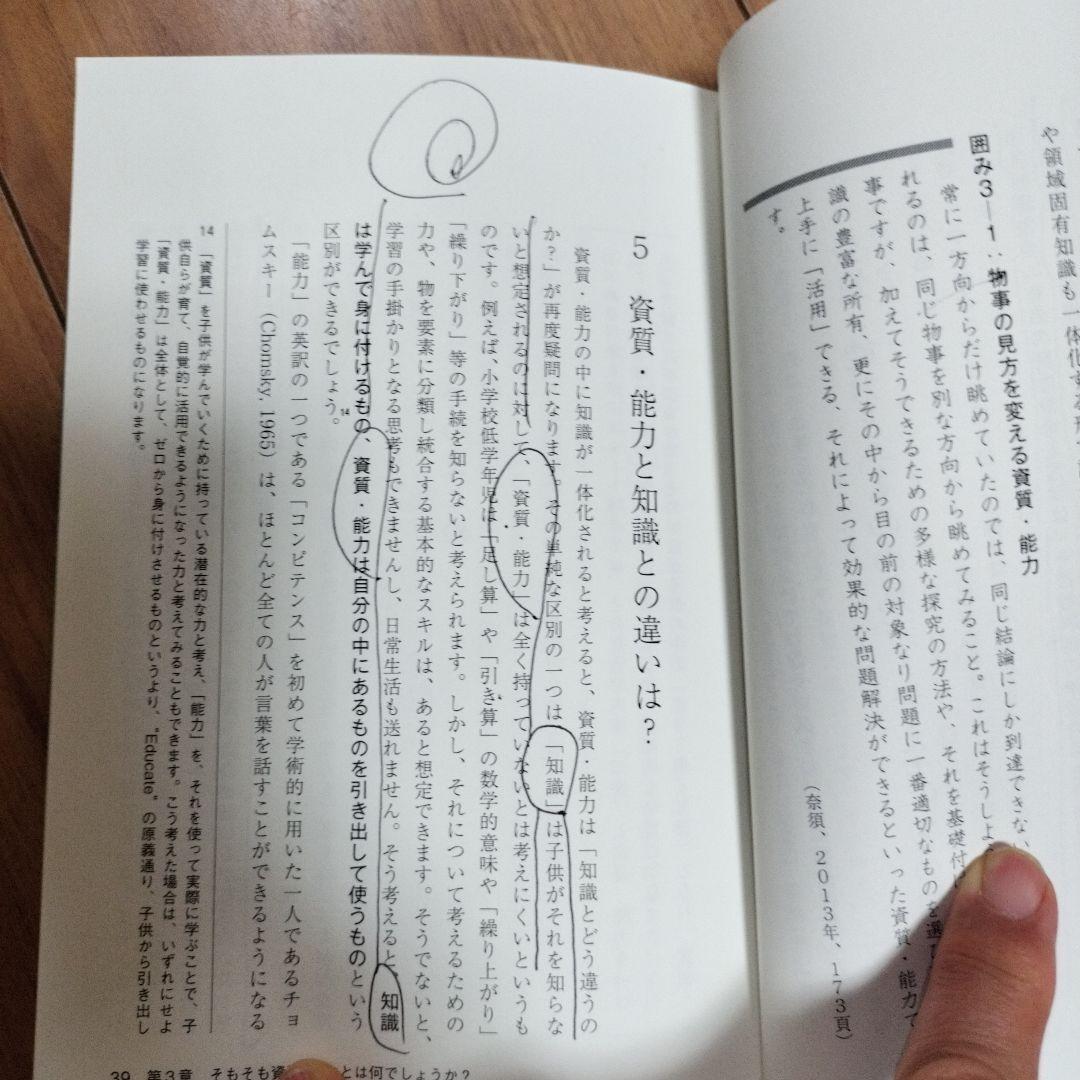 や領域固有知識も一体化する形
囲み3―1：物事の見方を変える資質・能力
常に一方向からだけ眺めていたのでは、同じ結論にしか到達できない
れるのは、同じ物事を別な方向から眺めてみること。これはそうしよう
事ですが、加えてそうできるための多様な探究の方法や、それを基礎付け
識の豊富な所有、更にその中から目の前の対象なり問題に一番適切なものを選
上手に「活用」できる、それによって効果的な問題解決ができるといった資質・能力で
す。
（奈須、2013年、173頁）
5 資質・能力と知識との違いは？
資質・能力の中に知識が一体化されると考えると、資質・能力は「知識とどう違うの
か？」が再度疑問になります。その単純な区別の一つは、「知識」は子供がそれを知らな
いと想定されるのに対して、「資質・能力」は全く持っていないとは考えにくいというも
のです。例えば、小学校低学年児は「足し算」や「引き算」の数学的意味や「繰り上がり」
「繰り下がり」等の手続を知らないと考えられます。しかし、それについて考えるための
力や、物を要素に分類し統合する基本的なスキルは、あると想定できます。そうでないと、
学習の手掛かりとなる思考もできませんし、日常生活も送れません。そう考えると、知識
は学んで身に付けるもの、資質・能力は自分の中にあるものを引き出して使うものという
区別ができるでしょう。14
「能力」の英訳の一つである「コンピテンス」を初めて学術的に用いた一人であるチョ
ムスキー（Chomsky, 1965）は、ほとんど全ての人が言葉を話すことができるようになる
14 「資質」を子供が学んでいくために持っている潜在的な力と考え、「能力」を、それを使って実際に学ぶことで、子
供自らが育て、自覚的に活用できるようになった力と考えてみることもできます。こう考えた場合は、いずれにせよ
「資質・能力」は全体として、ゼロから身に付けさせるものというより、"Educate"の原義通り、子供から引き出し
学習に使わせるものになります。
39 第3章 そもそも資 とは何でしょうか？